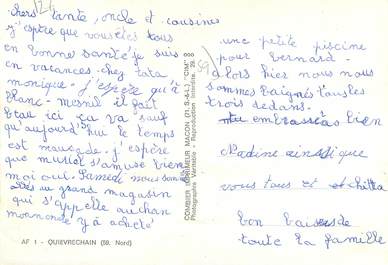 chers tante, oncle et cousines
j'espère que vous êtes tous
en bonne santé je suis
en vacances chez tata
monique. j'espère qu'à
blanc-mesnil il fait
beau ici ça va sauf
qu'aujourd'hui le temps
est mausade. j'espère
que muriel s'amuse bien
moi oui. Samedi nous sommes
allés au grand magasin
qui s'appelle auchan
mamande y à acheté
AF 1 - QUIEVRECHAIN (59. Nord)
COMBIER IMPRIMEUR MACON (71. S.-&-L.) "CIM"
Photographie Véritable - Reproduction Interdite.
une petite piscine
pour bernard.
alors hier nous nous
sommes baignés tous les
trois dedans.
embrasses bien
Nadine ainsi que
vous tous et chitta
bon baisers de
toute la famille